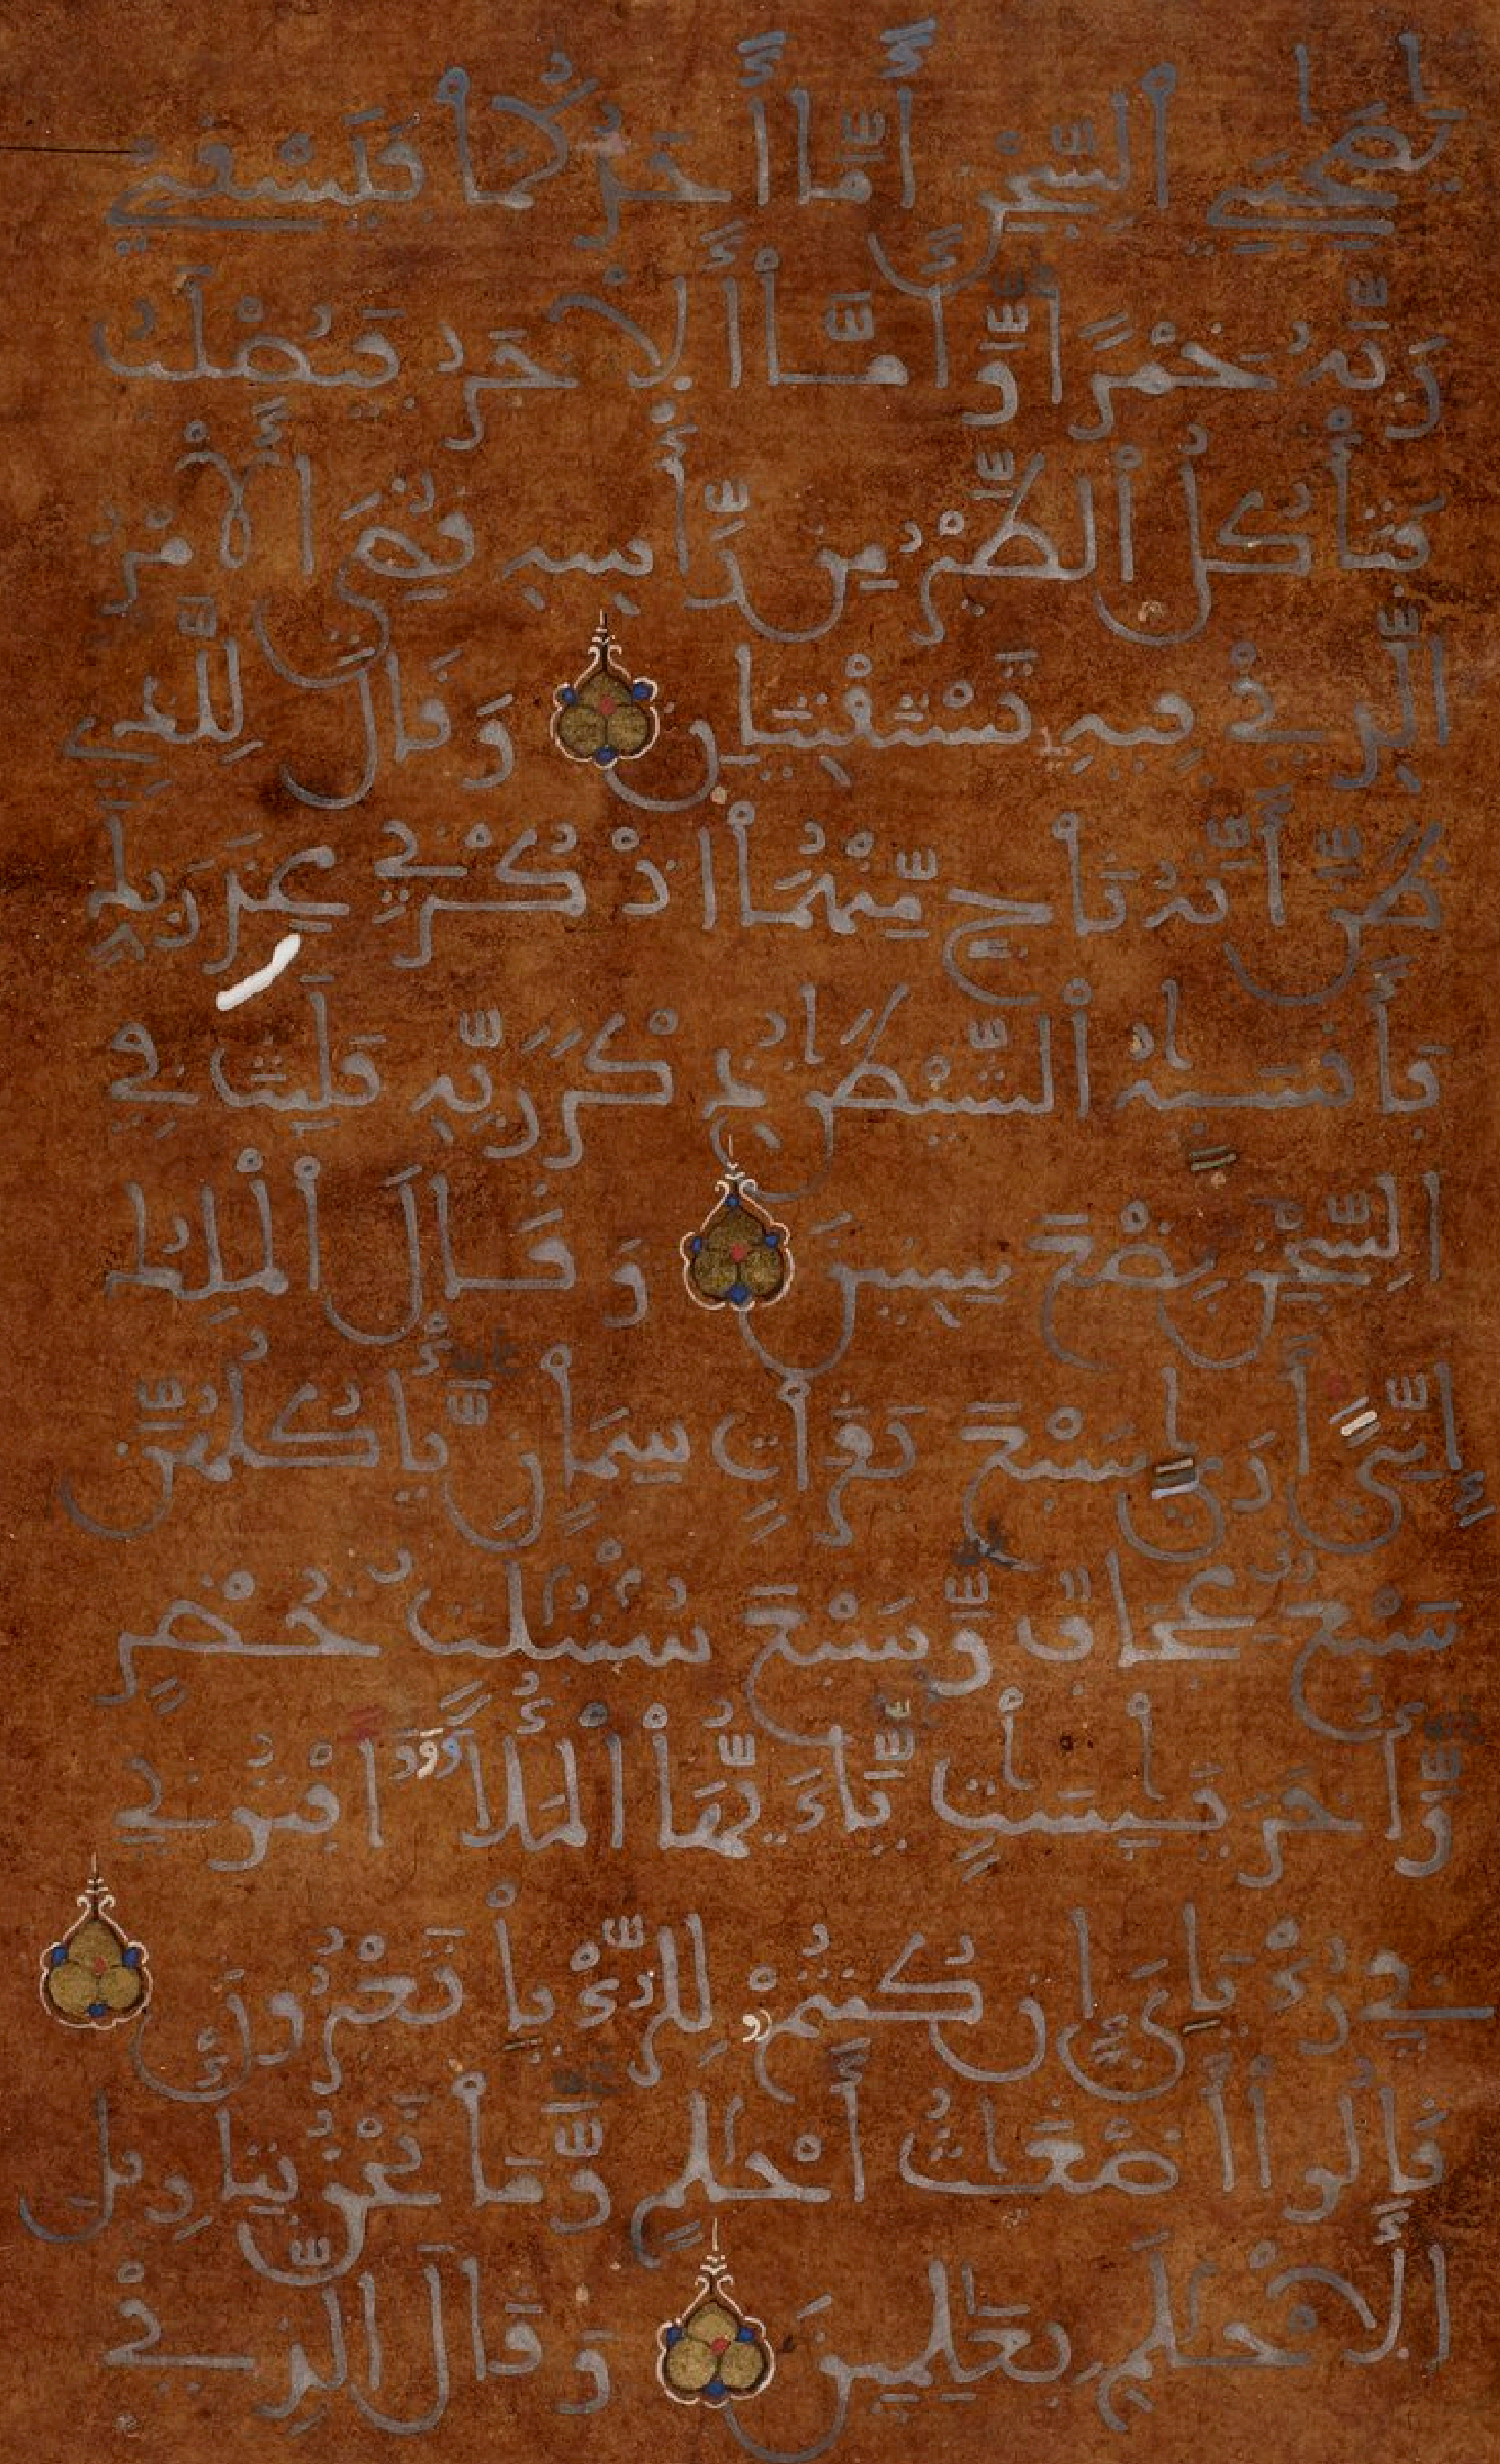 يَٰصَٰحِبَيِ اِ۬لسِّجْنِ أَمَّا أَحَدُكُمَا فَيَسْقِي
رَبَّهُۥ خَمْرًا وَّأَمَّا اَ۬لْأٓخَرُ فَيُصْلَبُ
فَتَأْكُلُ اُ۬لطَّيْرُ مِن رَّأْسِهِۦ قُضِيَ اَ۬لْأَمْرُ
اُ۬لذِے فِيهِ تَسْتَفْتِيَٰنِ وَقَالَ لِلذِے
ظَنَّ أَنَّهُۥ نَاجٍ مِّنْهُمَا اَ۟ذْكُرْنِے عِندَ رَبِّكَ
فَأَنسَىٰهُ اُ۬لشَّيْطَٰنُ ذِكْرَ رَبِّهِۦ فَلَبِثَ فِے
اِ۬لسِّجْنِ بِضْعَ سِنِينَ وَقَالَ اَ۬لْمَلِكُ
إِنِّيَ أَر۪ىٰ سَبْعَ بَقَرَٰتٍ سِمَانٍ يَّأْكُلُهُنَّ
سَبْعٌ عِجَافٌ وَّسَبْعَ سُنۢبُلَٰتٍ خُضْرٍ
وَّأُخَرَ يَابِسَٰتٍ يَٰٓأَيُّهَا اَ۬لْمَلَأُ اَ۬فْتُونِے
فِے رُءْيَٰيَ إِن كُنتُمْ لِلرُّءْيَا تَعْبُرُونَ
قَالُوٓا۟ أَضْغَٰثُ أَحْلَٰمٍ وَّمَا نَحْنُ بِتَأْوِيلِ
اِ۬لْأَحْلَٰمِ بِعَٰلِمِينَ وَقَالَ اَ۬لذِے